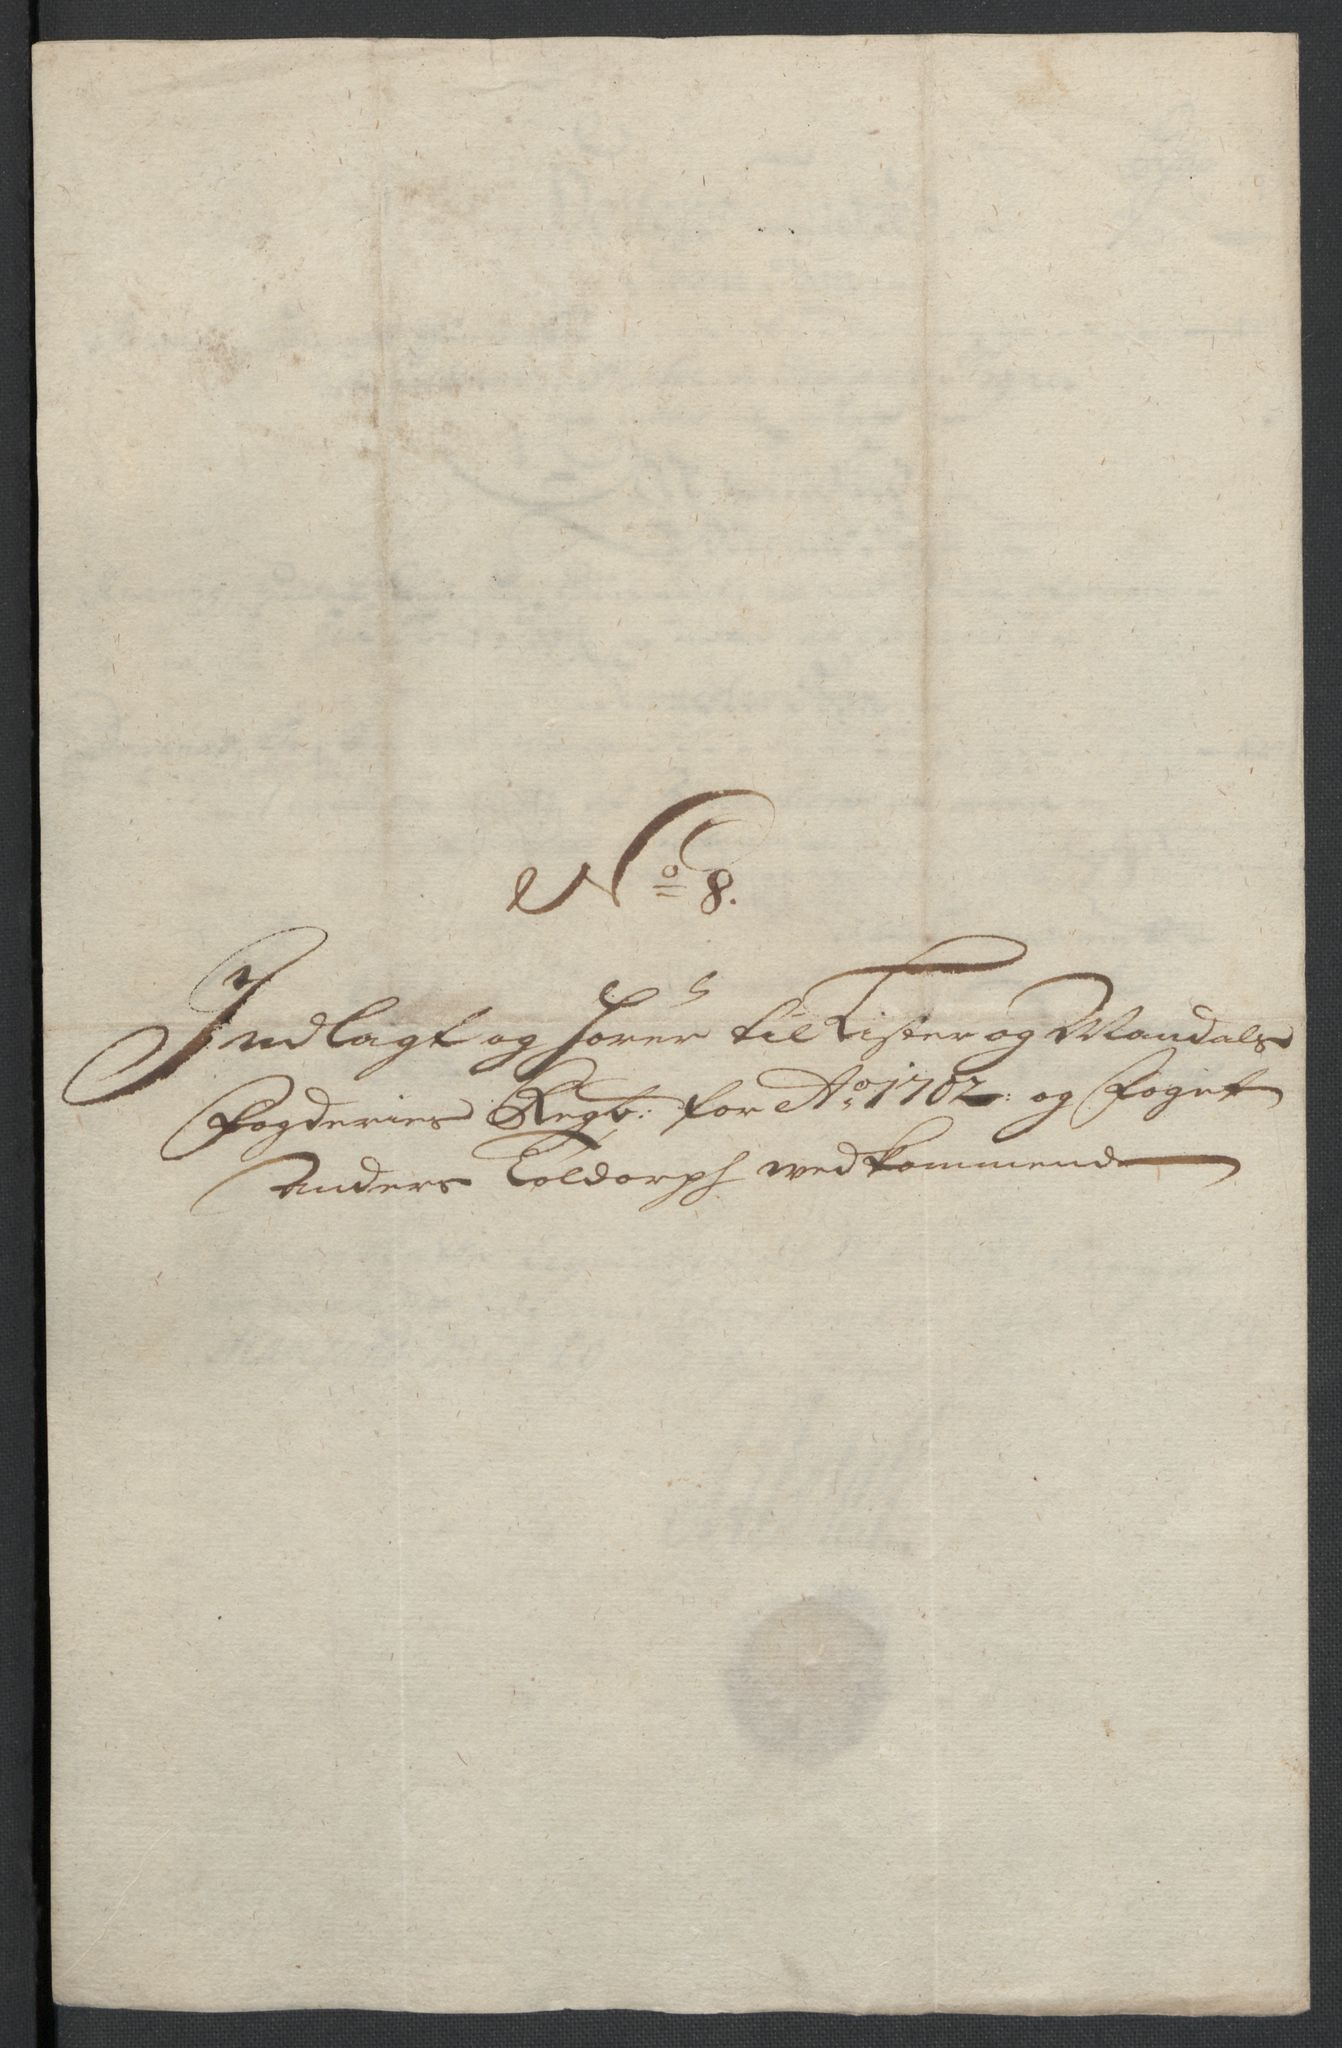 No 8.
Indlagt og hörer til Lister og Mandals
Fogderies Regb: for Ao 1702: og Foget
Anders Toldorph wedkommend